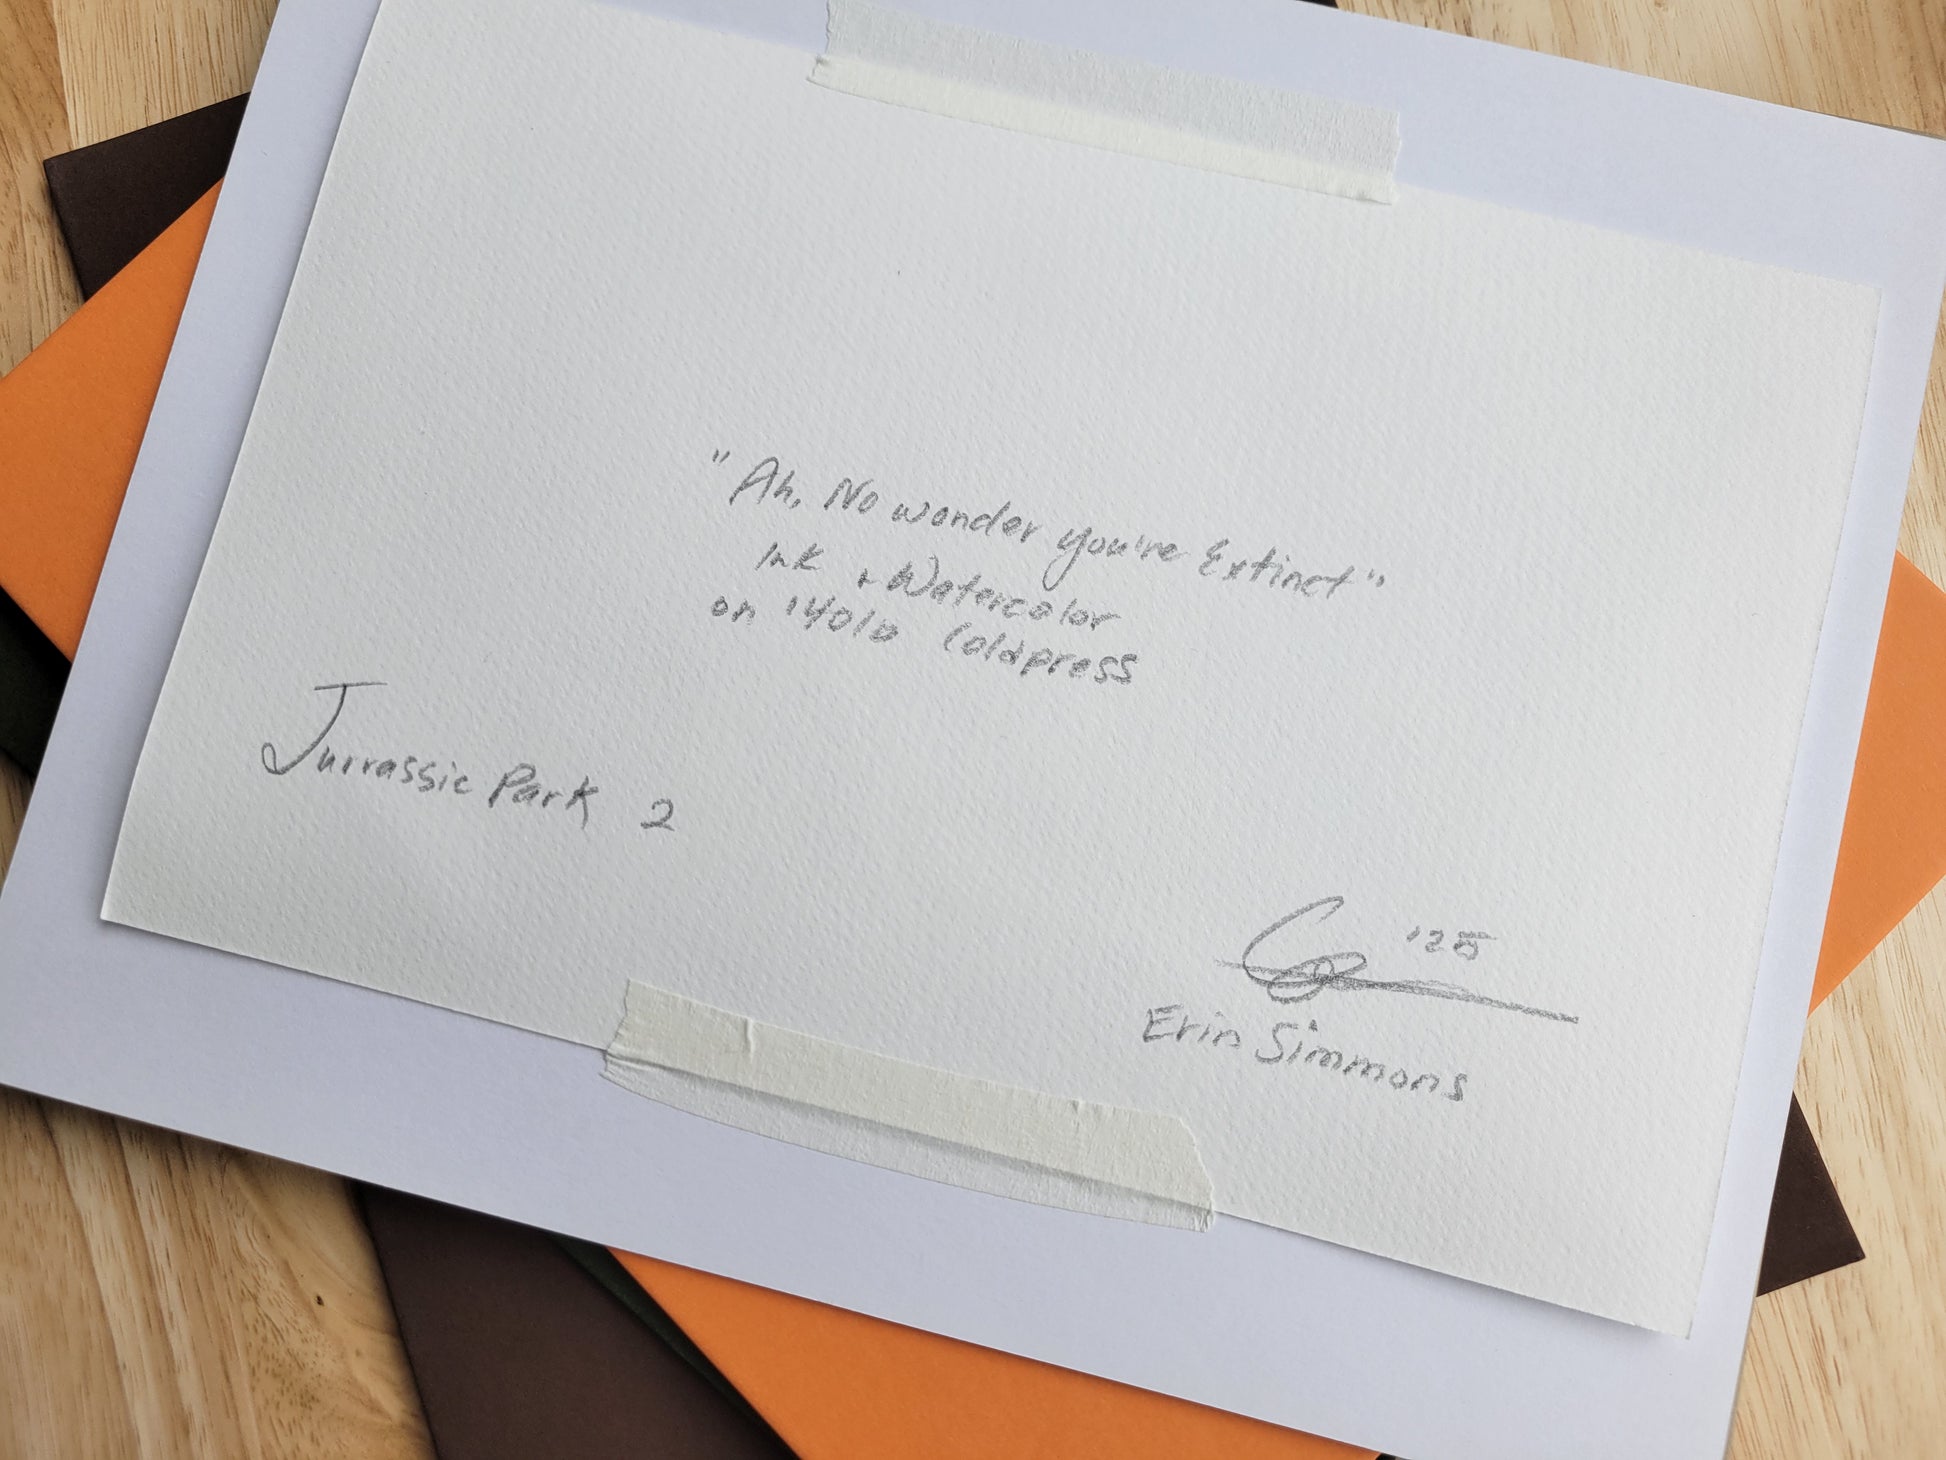 "Ah, No wonder you're Extinct"
Ink + Watercolor
on 140lb Coldpress
Jurrassic Park 2
'25
Erin Simmons